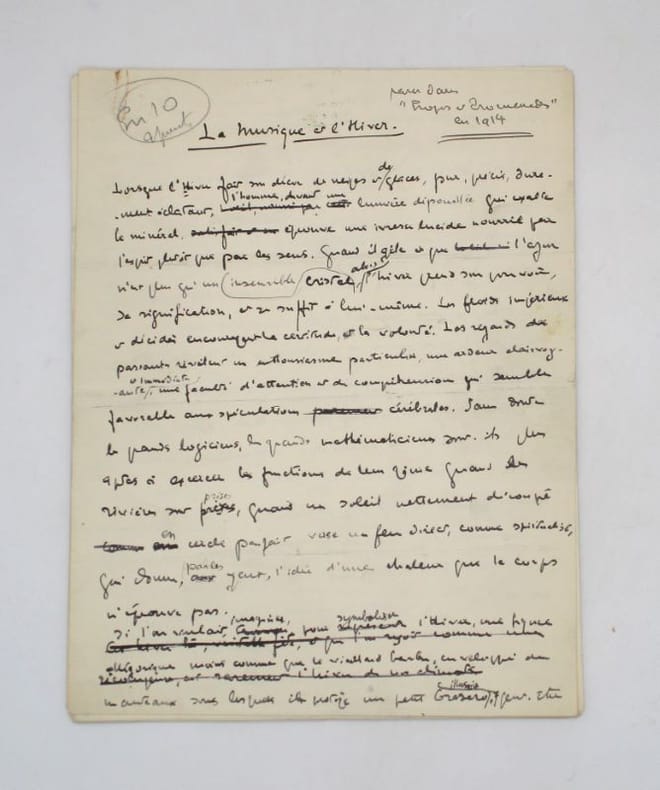 En 10
paru dans
"Propos et Promenades"
en 1914
La Musique et l'Hiver.
de
Lorsque l'Hiver fait son décor de neiges et glaces, pur, précis, dure-
l'homme, devant une
-ment éclatant, lumière dépouillée qui exalte
le minéral, éprouve une ivresse lucide nourrie par
l'esprit plutôt que par les sens. Quand il gèle et que l'azur
alors
n'est plus qu'un insensible cristal, l'hiver prend son pouvoir,
sa signification, et se suffit à lui-même. Les froids impérieux
et décidés encouragent la certitude, et la volonté. Les regards des
passants révèlent un enthousiasme particulier, une ardeur clairvoy-
et immédiate
-ante, une faculté d'attention et de compréhension qui semble
favorable aux spéculations cérébrales. Sans doute
les grands logiciens, les grands mathématiciens sont-ils plus
aptes à exercer les fonctions de leur génie quand les
prises
rivières sont, quand un soleil nettement découpé
en
cercle parfait verse un feu direct, comme spiritualisé,
par les
qui donne, yeux, l'idée d'une chaleur que le corps
n'éprouve pas.
imaginer, symboliser
Si l'on voulait, pour l'Hiver, une figure
allégorique moins connue que le vieillard barbu, enveloppé de
illusoire
manteaux sous lesquels il protège un petit brasero,